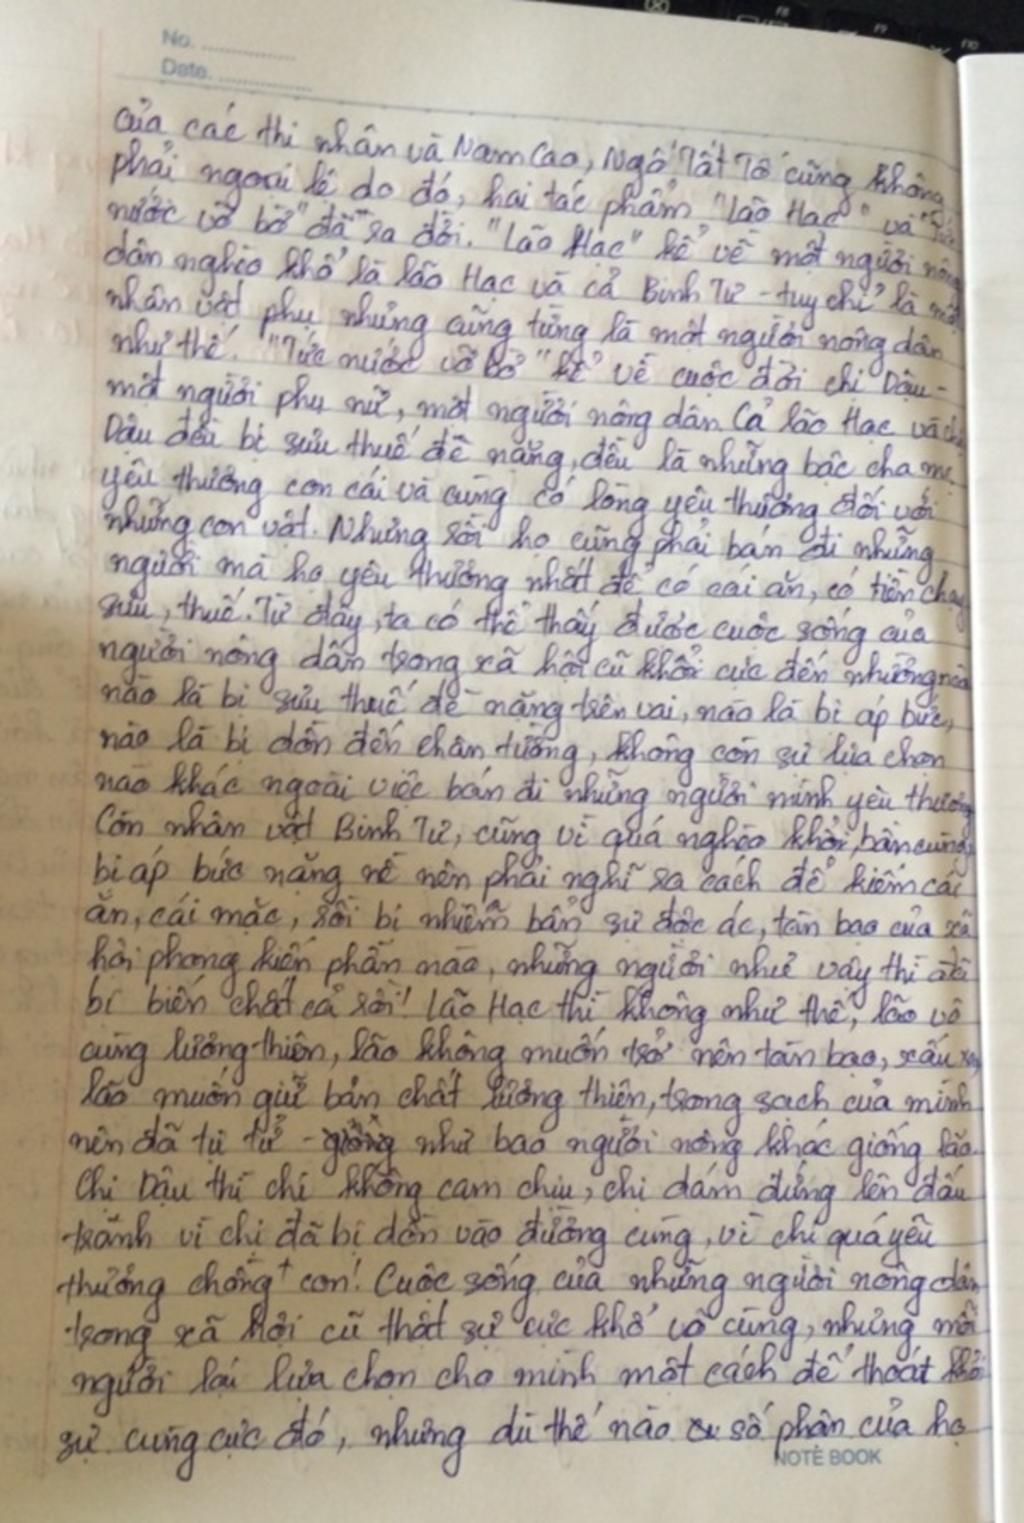 No. ............
Date. ............
của các thi nhân và Nam Cao, Ngô Tất Tố cũng không
phải ngoại lệ do đó, hai tác phẩm "Lão Hạc" và "Tức
nước vỡ bờ" đã ra đời. "Lão Hạc" kể về một người nông
dân nghèo khổ là lão Hạc và cả Binh Tư - tuy chỉ là một
nhân vật phụ nhưng cũng từng là một người nông dân
như thế. "Tức nước vỡ bờ" kể về cuộc đời chị Dậu -
một người phụ nữ, một người nông dân. Cả lão Hạc và chị
Dậu đều bị sưu thuế đè nặng, đều là những bậc cha mẹ
yêu thương con cái và cùng có lòng yêu thương đối với
những con vật. Nhưng rồi họ cũng phải bán đi những
người mà họ yêu thương nhất để có cái ăn, có tiền chạy
sưu, thuế. Từ đây, ta có thể thấy được cuộc sống của
người nông dân trong xã hội cũ khổ cực đến nhường nào
nào là bị sưu thuế đè nặng trên vai, nào là bị áp bức,
nào là bị dồn đến chân tường, không còn sự lựa chọn
nào khác ngoài việc bán đi những người mình yêu thương
Còn nhân vật Binh Tư, cũng vì quá nghèo khổ, bần cùng,
bị áp bức nặng nề nên phải nghĩ ra cách để kiếm cái
ăn, cái mặc, rồi bị nhiễm bẩn sự độc ác, tàn bạo của xã
hội phong kiến phần nào, những người như vậy thì đã
bị biến chất cả rồi! Lão Hạc thì không như thế, lão vô
cùng lương thiện, lão không muốn trở nên tàn bạo, xấu xa,
lão muốn giữ bản chất lương thiện, trong sạch của mình
nên đã tự tử - giống như bao người nông khác giống lão.
Chị Dậu thì chị không cam chịu, chị dám đứng lên đấu
tranh vì chị đã bị dồn vào đường cùng, vì chị quá yêu
thương chồng + con! Cuộc sống của những người nông dân
trong xã hội cũ thật sự cực khổ vô cùng, nhưng mỗi
người lại lựa chọn cho mình một cách để thoát khỏi
sự cùng cực đó, nhưng dù thế nào số phận của họ
NOTE BOOK